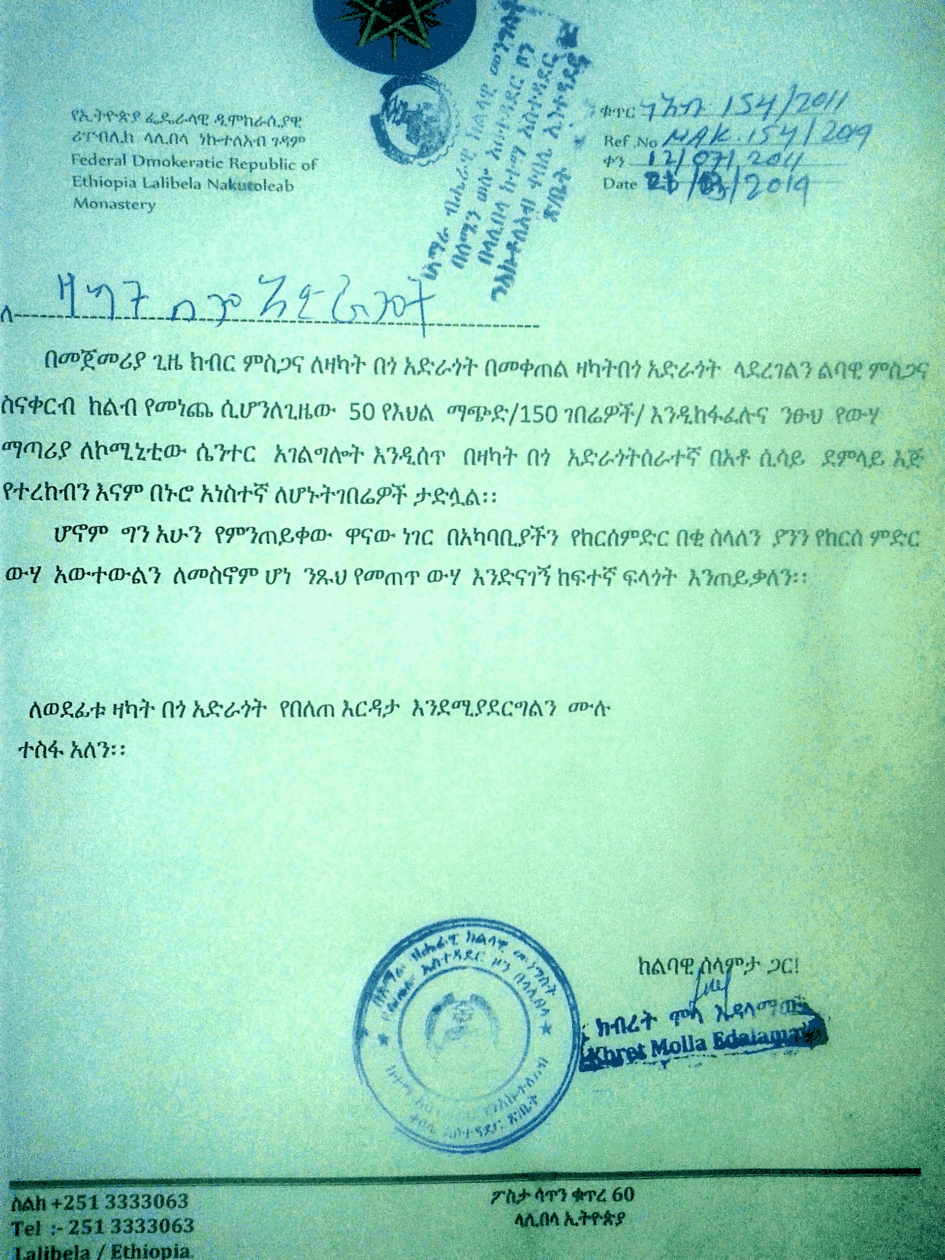 የኢትዮጵያ ፌዴራላዊ ዲሞክራሲያዊ
ሪፐብሊክ ላሊበላ ነኩተለአብ ገዳም
Federal Dmokeratic Republic of
Ethiopia Lalibela Nakutoleab
Monastery
ቁጥር 154/2011
Ref .No MAK. 154/2019
ቀን 12/07/2011
Date /2019
በአማራ ብሔራዊ ክልላዊ መንግስት
በሰሜን ወሎ አስተዳደር ዞን
በላሊበላ ከተማ አስተዳደር
ጽ/ቤት
ለ ዛካት በጎ አድራጎት
በመጀመሪያ ጊዜ ክብር ምስጋና ለዛካት በጎ አድራጎት በመቀጠል ዛካትበጎ አድራጎት ላደረገልን ልባዊ ምስጋና
ስናቀርብ ከልብ የመነጨ ሲሆንለጊዜው 50 የእህል ማጭድ/150 ገበሬዎች/ እንዲከፋፈሉና ንፁህ የውሃ
ማጣሪያ ለኮሚኒቲው ሴንተር አገልግሎት እንዲሰጥ በዛካት በጎ አድራጎትሰራተኛ በአቶ ሲሳይ ደምላይ እጅ
የተረከብን እናም በኑሮ አነስተኛ ለሆኑትገበሬዎች ታድሏል፡፡
ሆኖም ግን አሁን የምንጠይቀው ዋናው ነገር በአካባቢያችን የከርሰምድር በቂ ስላለን ያንን የከርሰ ምድር
ውሃ አውተውልን ለመስኖም ሆነ ንጹህ የመጠጥ ውሃ እንድናገኝ ከፍተኛ ፍላጎት እንጠይቃለን፡፡
ለወደፊቱ ዛካት በጎ አድራጎት የበለጠ እርዳታ እንደሚያደርግልን ሙሉ
ተስፋ አለን፡፡
ከልባዊ ሰላምታ ጋር!
ክብረት ሞላ እዳላማው
Kbret Molla Edalamaw
በአማራ ብሔራዊ ክልላዊ መንግስት
ስልክ +251 3333063
Tel :- 251 3333063
Lalibela / Ethiopia
ፖስታ ሳጥን ቁጥረ 60
ላሊበላ ኢትዮጵያ